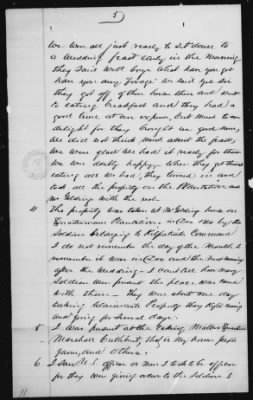 5
We were all just ready to sit down to
a Wedding feast early in the morning
they said Well boys what have you got
have you any forage we said yes sir
they got off of their horses then and went
to eating breakfast and they had a
good time at our expense, but much to our
delight for they brought us good news,
we did not think much about the feast,
we were glad we had it ready for them
we were doubly happy. When they got through
eating all we had, they turned in and
took all the property on the Plantation
Mr Golding with the rest.
4 The property was taken at Mr Golding's
Plantation in
Soldiers belonging to Kilpatrick's Command
I do not remember the day of the Month. I
remember it was in Dec and the next morning
after the Wedding — I can't tell how many
Soldiers were present the place was lined
with them — They were about one day
taking Claimants Property they kept coming
and going for several days.
5 I was present at the taking
Marshall Cuthbert, Joseph
James, and others.
6 I saw U.S. officers or men I took to be officers
for they were giving orders to the Soldiers &